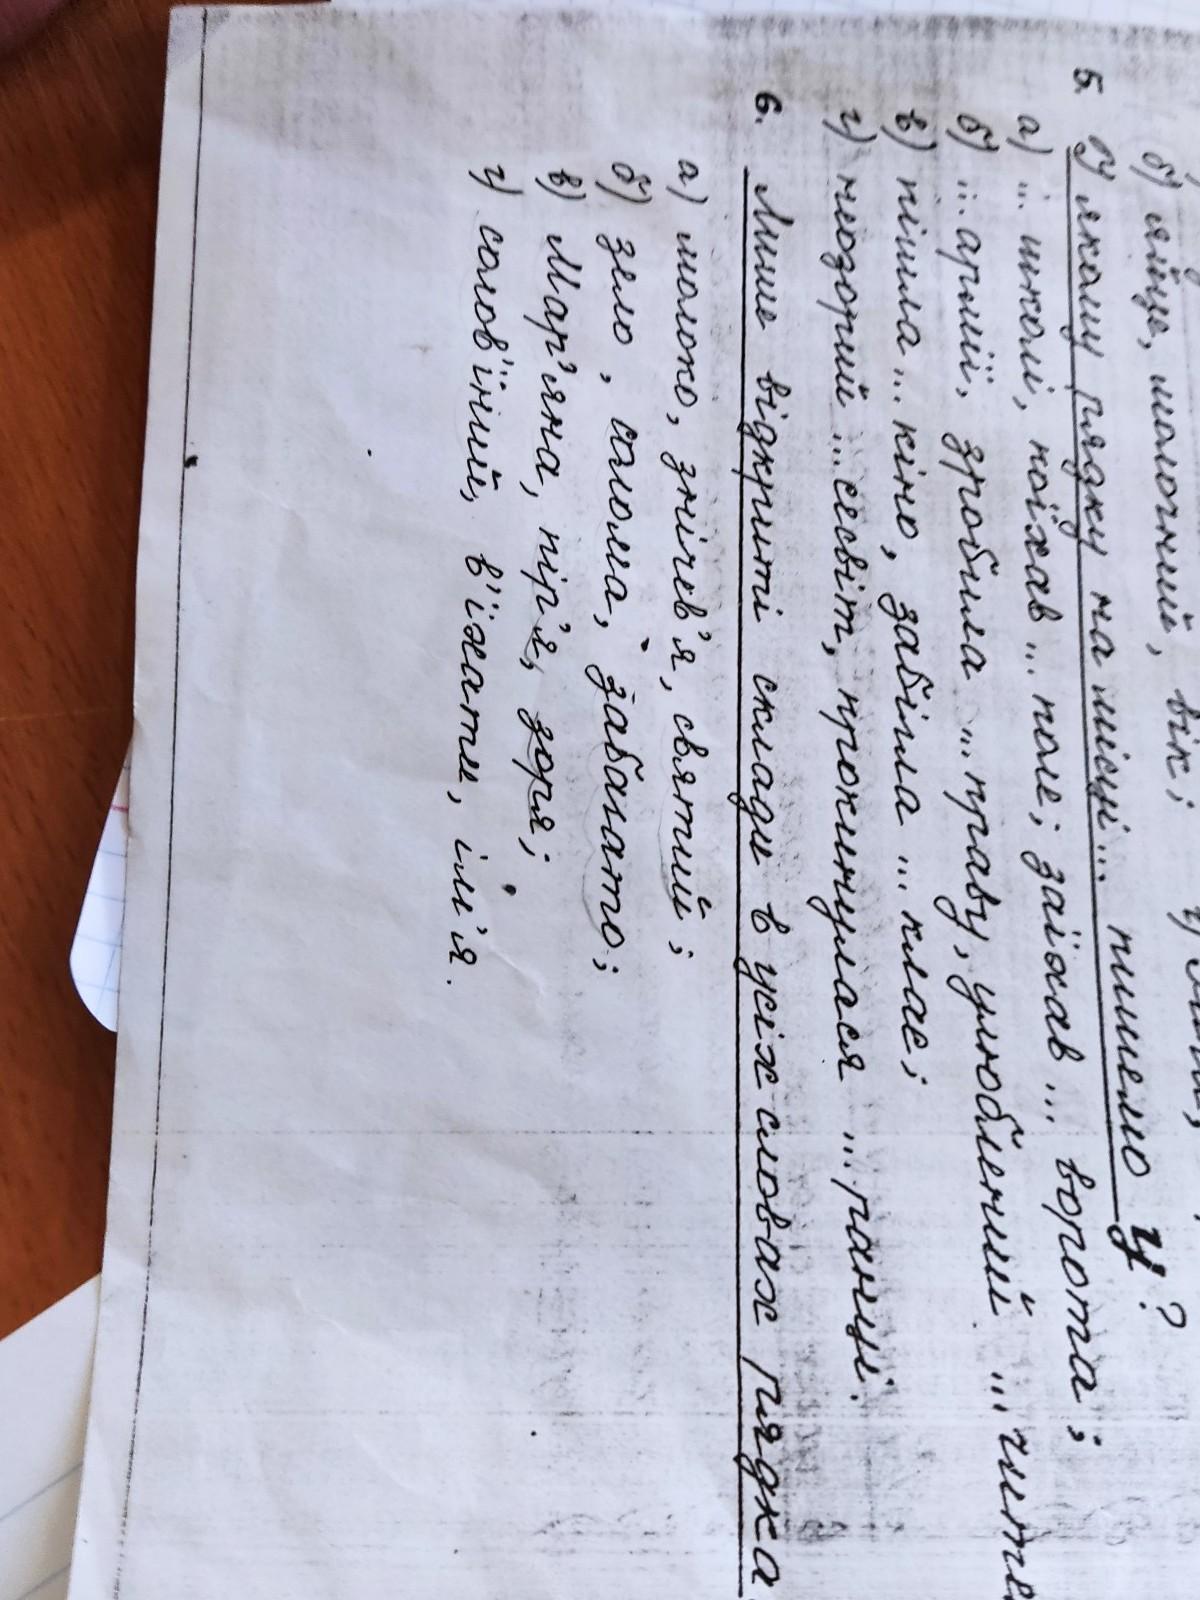 б) яйце, молочний, вік;
5. У якому рядку на місці... пишемо у?
а) ... школі, поїхав ... поле; заїхав ... ворота;
б) ... армії, зробила ... праву, улюблений ...
в) пішла ... кіно, забігла ... клас;
г) неозорий ... сесвіт, прокинулася ... ранці.
6. Лише відкриті склади в усіх словах рядка
а) молоко, знічев'я, святий;
б) зело, солома, забагато;
в) Мар'яна, пір'я, зоря;
г) солов'їний, в'їхати, ім'я.